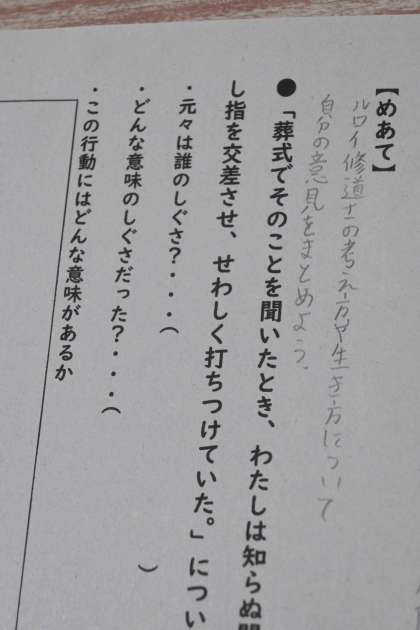 【めあて】
ルロイ修道士の考え方や生き方について
自分の意見をまとめよう。
●「葬式でそのことを聞いたとき、わたしは知らぬ間
し指を交差させ、せわしく打ちつけていた。」につい
・元々は誰のしぐさ?・・・(
・どんな意味のしぐさだった?・・・( )
・この行動にはどんな意味があるか